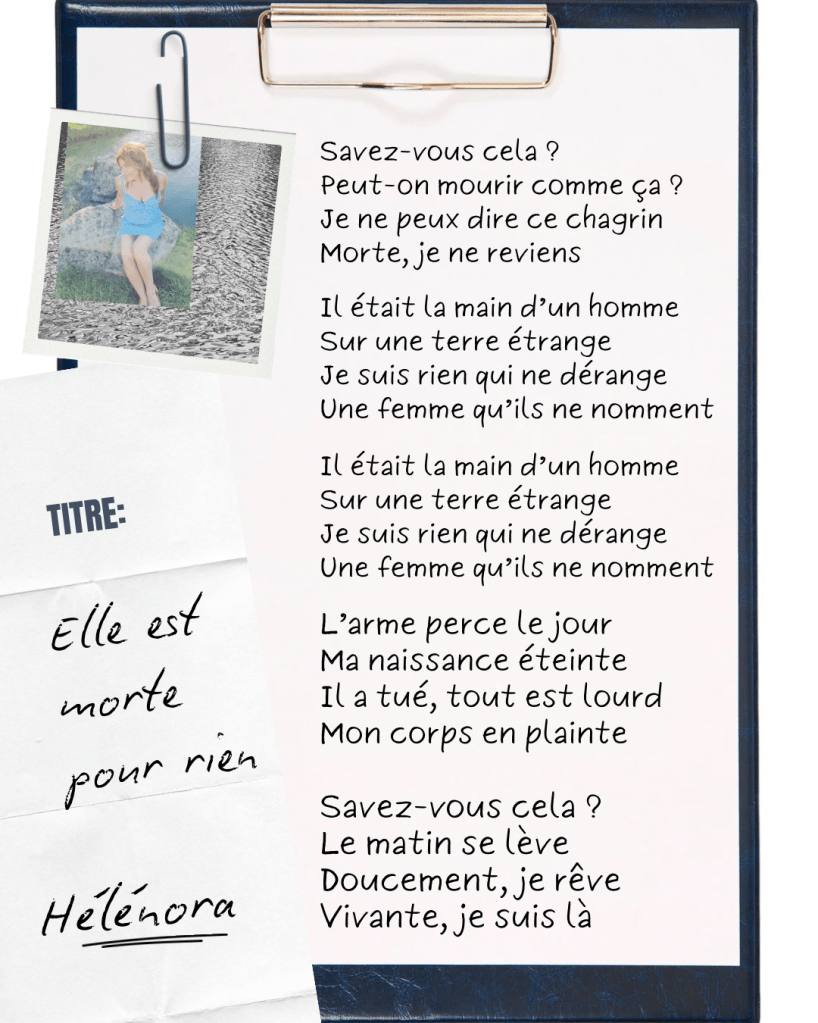 Savez-vous cela ?
Peut-on mourir comme ça ?
Je ne peux dire ce chagrin
Morte, je ne reviens
Il était la main d’un homme
Sur une terre étrange
Je suis rien qui ne dérange
Une femme qu’ils ne nomment
Il était la main d’un homme
Sur une terre étrange
Je suis rien qui ne dérange
Une femme qu’ils ne nomment
L’arme perce le jour
Ma naissance éteinte
Il a tué, tout est lourd
Mon corps en plainte
Savez-vous cela ?
Le matin se lève
Doucement, je rêve
Vivante, je suis là
TITRE:
Elle est
morte
pour rien
Hélénora